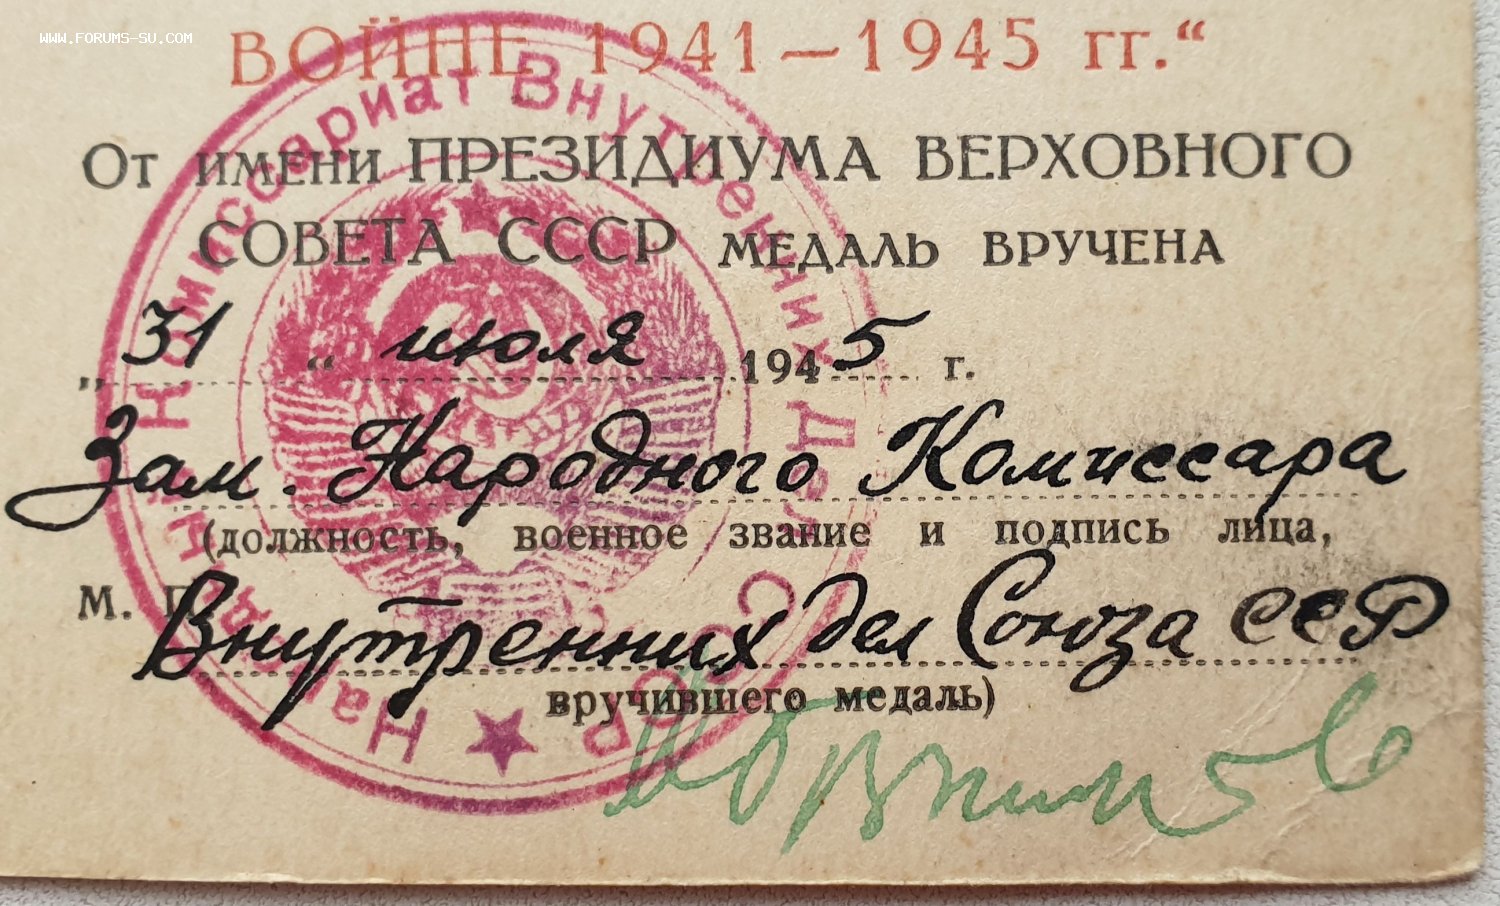 www.forums-su.com
ВОЙНЕ 1941—1945 гг."
От имени ПРЕЗИДИУМА ВЕРХОВНОГО
СОВЕТА СССР МЕДАЛЬ ВРУЧЕНА
„ 31 " июля 1945 г.
Зам. Народного Комиссара
(должность, военное звание и подпись лица,
М. П. Внутренних дел Союза ССР
вручившего медаль)
Народный Комиссариат Внутренних Дел СССР